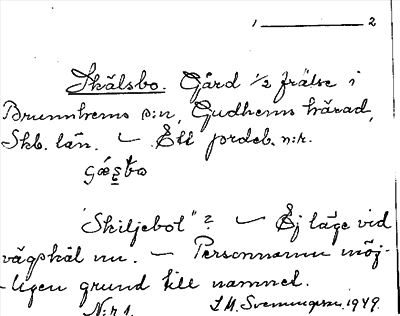 1 ——— 2
Skälsbo. Gård 1/2 frälse i
Brunnhems s:n, Gudhems härad,
Skb. län. — Ett jordeb. n:r.
"Skiljebol"? — Ej läge vid
vägskäl nu. — Personnamn möj-
ligen grund till namnet.
N:r 1. S. H. Svenningsson. 1949.